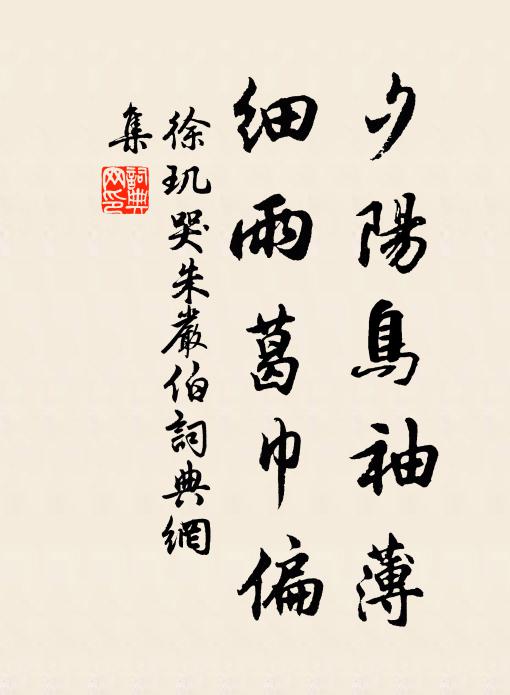 夕陽鳥袖薄
細雨葛巾偏
徐玑哭朱嚴伯詞典網
集
詞典
网印